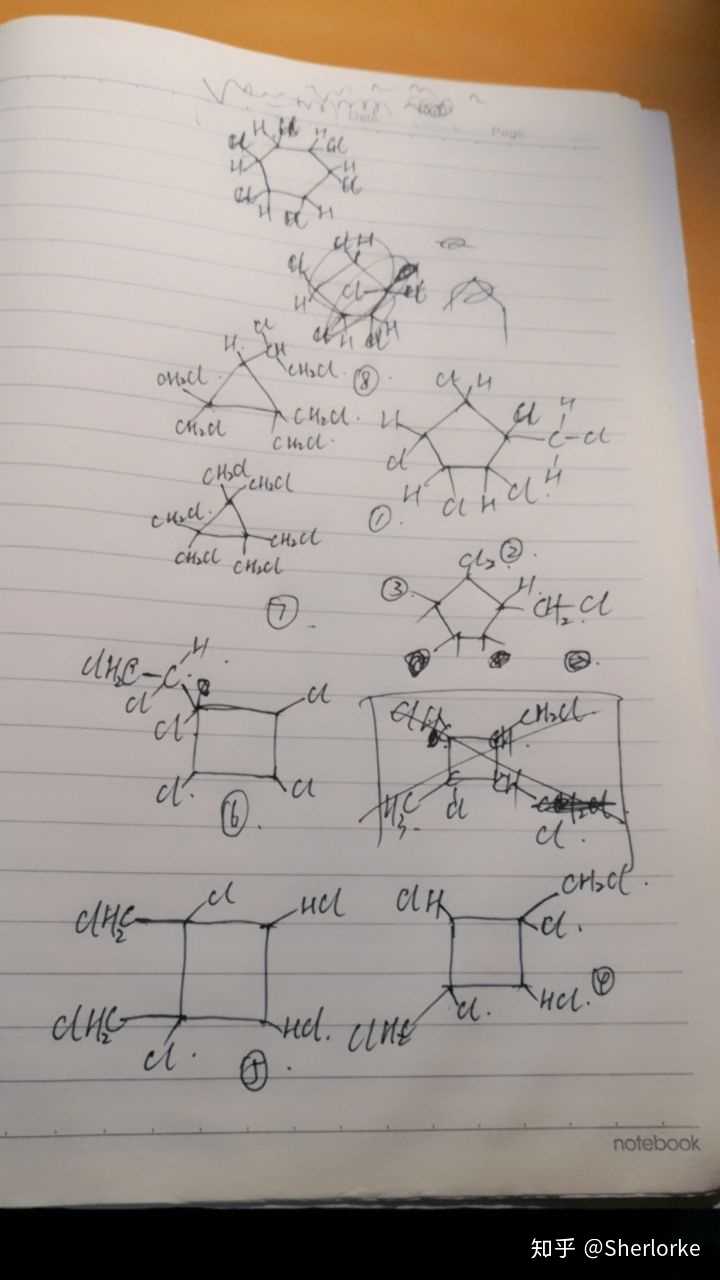 Page
H Cl H Cl
Cl
H H
Cl Cl
H Cl H
Cl H
Cl
H Cl Cl
Cl H Cl H
Cl
H CH
CH2Cl CH2Cl ⑧
CH2Cl CH2Cl
CH2Cl
Cl H
H Cl H
C-Cl
Cl H
H Cl H Cl
①
CH2Cl
CH2Cl
CH2Cl CH2Cl
CH2Cl CH2Cl
⑦
Cl2 ②
③ H
CH2Cl
ClH2C-C H
Cl Cl
Cl
Cl Cl
⑥
ClH2C CH2Cl
C CH
C CH
H3C Cl
Cl
ClH2C Cl HCl
ClH2C HCl
Cl
⑤
ClH CH2Cl
Cl
HCl ④
ClH2C Cl
notebook
知乎 @Sherlorke